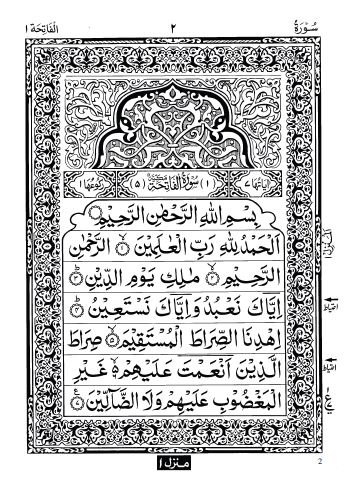 سُوْرَةُ ٢ الفَاتِحَة ١
اٰيَاتُهَا ٧ (١) سُوْرَةُ الْفَاتِحَةِ مَكِّيَّةٌ (٥) رُكُوْعُهَا ١
بِسْمِ اللّٰهِ الرَّحْمٰنِ الرَّحِيْمِ
اَلْحَمْدُ لِلّٰهِ رَبِّ الْعٰلَمِيْنَ ۙ‏﴿١﴾ الرَّحْمٰنِ
الرَّحِيْمِ ۙ‏﴿٢﴾ مٰلِكِ يَوْمِ الدِّيْنِ ؕ‏﴿٣﴾
اِيَّاكَ نَعْبُدُ وَاِيَّاكَ نَسْتَعِيْنُ ؕ‏﴿٤﴾
اِهْدِنَا الصِّرَاطَ الْمُسْتَقِيْمَ ۙ‏﴿٥﴾ صِرَاطَ
الَّذِيْنَ اَنْعَمْتَ عَلَيْهِمْ ۙ۬ۙ‏﴿٦﴾ غَيْرِ
الْمَغْضُوْبِ عَلَيْهِمْ وَلَا الضَّآلِّيْنَ‏﴿٧﴾
المنزل ١
احتیاط
احتیاط
منزل ١
2